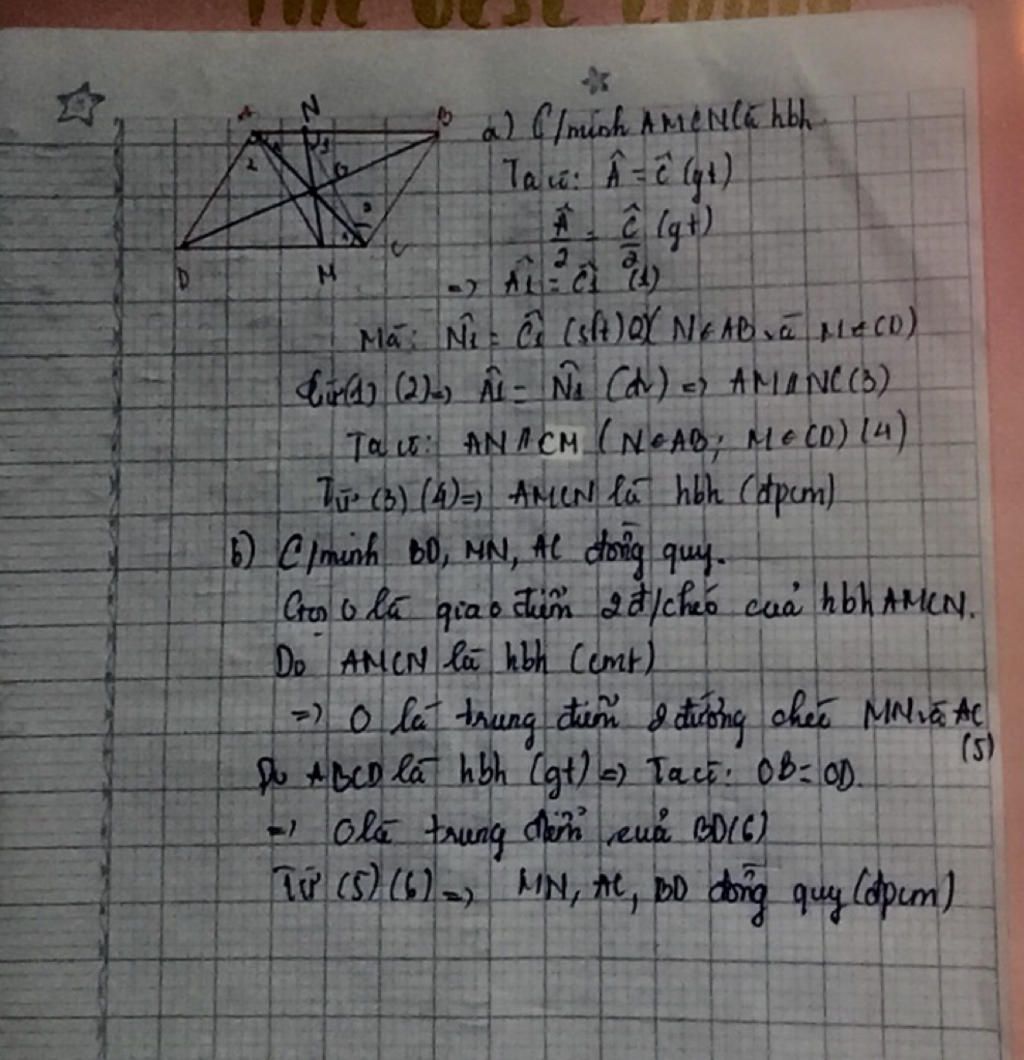 THE BEST
A N B
2 1 1
O
2
1
D M C
a) C/minh AMCN là hbh
Ta có: Â = Ĉ (gt)
Â/2 = Ĉ/2 (gt)
=> Â1 = Ĉ1 (1)
Mà: N̂1 = Ĉ1 (slt) (2) (N∈AB và M∈CD)
Từ (1) (2) => Â1 = N̂1 (đv) => AM//NC (3)
Ta có: AN//CM (N∈AB; M∈CD) (4)
Từ (3) (4) => AMCN là hbh (đpcm)
b) C/minh BD, MN, AC đồng quy.
Gọi O là giao điểm 2 đ/chéo của hbh AMCN.
Do AMCN là hbh (cmt)
=> O là trung điểm 2 đường chéo MN và AC
(5)
Do ABCD là hbh (gt) => Ta có: OB = OD.
=> O là trung điểm của BD (6)
Từ (5) (6) => MN, AC, BD đồng quy (đpcm)